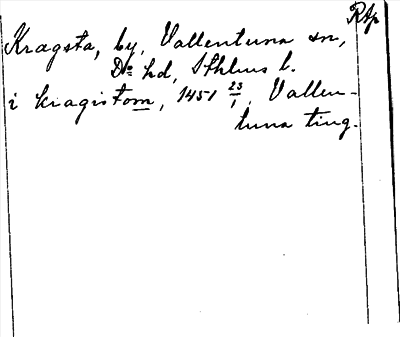 Rtp
Kragsta, by, Vallentuna sn,
Do hd, Sthlms l.
i kragistom, 1451 23/1, Vallen-
tuna ting.